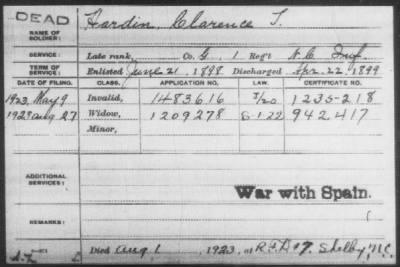 DEAD
NAME OF SOLDIER: Hardin, Clarence T.
SERVICE: Late rank Co. G, 1 Reg't N.C. Inf.
TERM OF SERVICE: Enlisted June 21, 1898 Discharged Apr. 22, 1899
DATE OF FILING. CLASS. APPLICATION NO. LAW. CERTIFICATE NO.
1923, May 9 Invalid, 1483616 1235218
1923 Aug 27 Widow, 1209278 5-1-22 942417
Minor,
ADDITIONAL SERVICES:
War with Spain.
REMARKS:
Died Aug 1, 1923, at R.F.D. #7, Shelby, N.C.